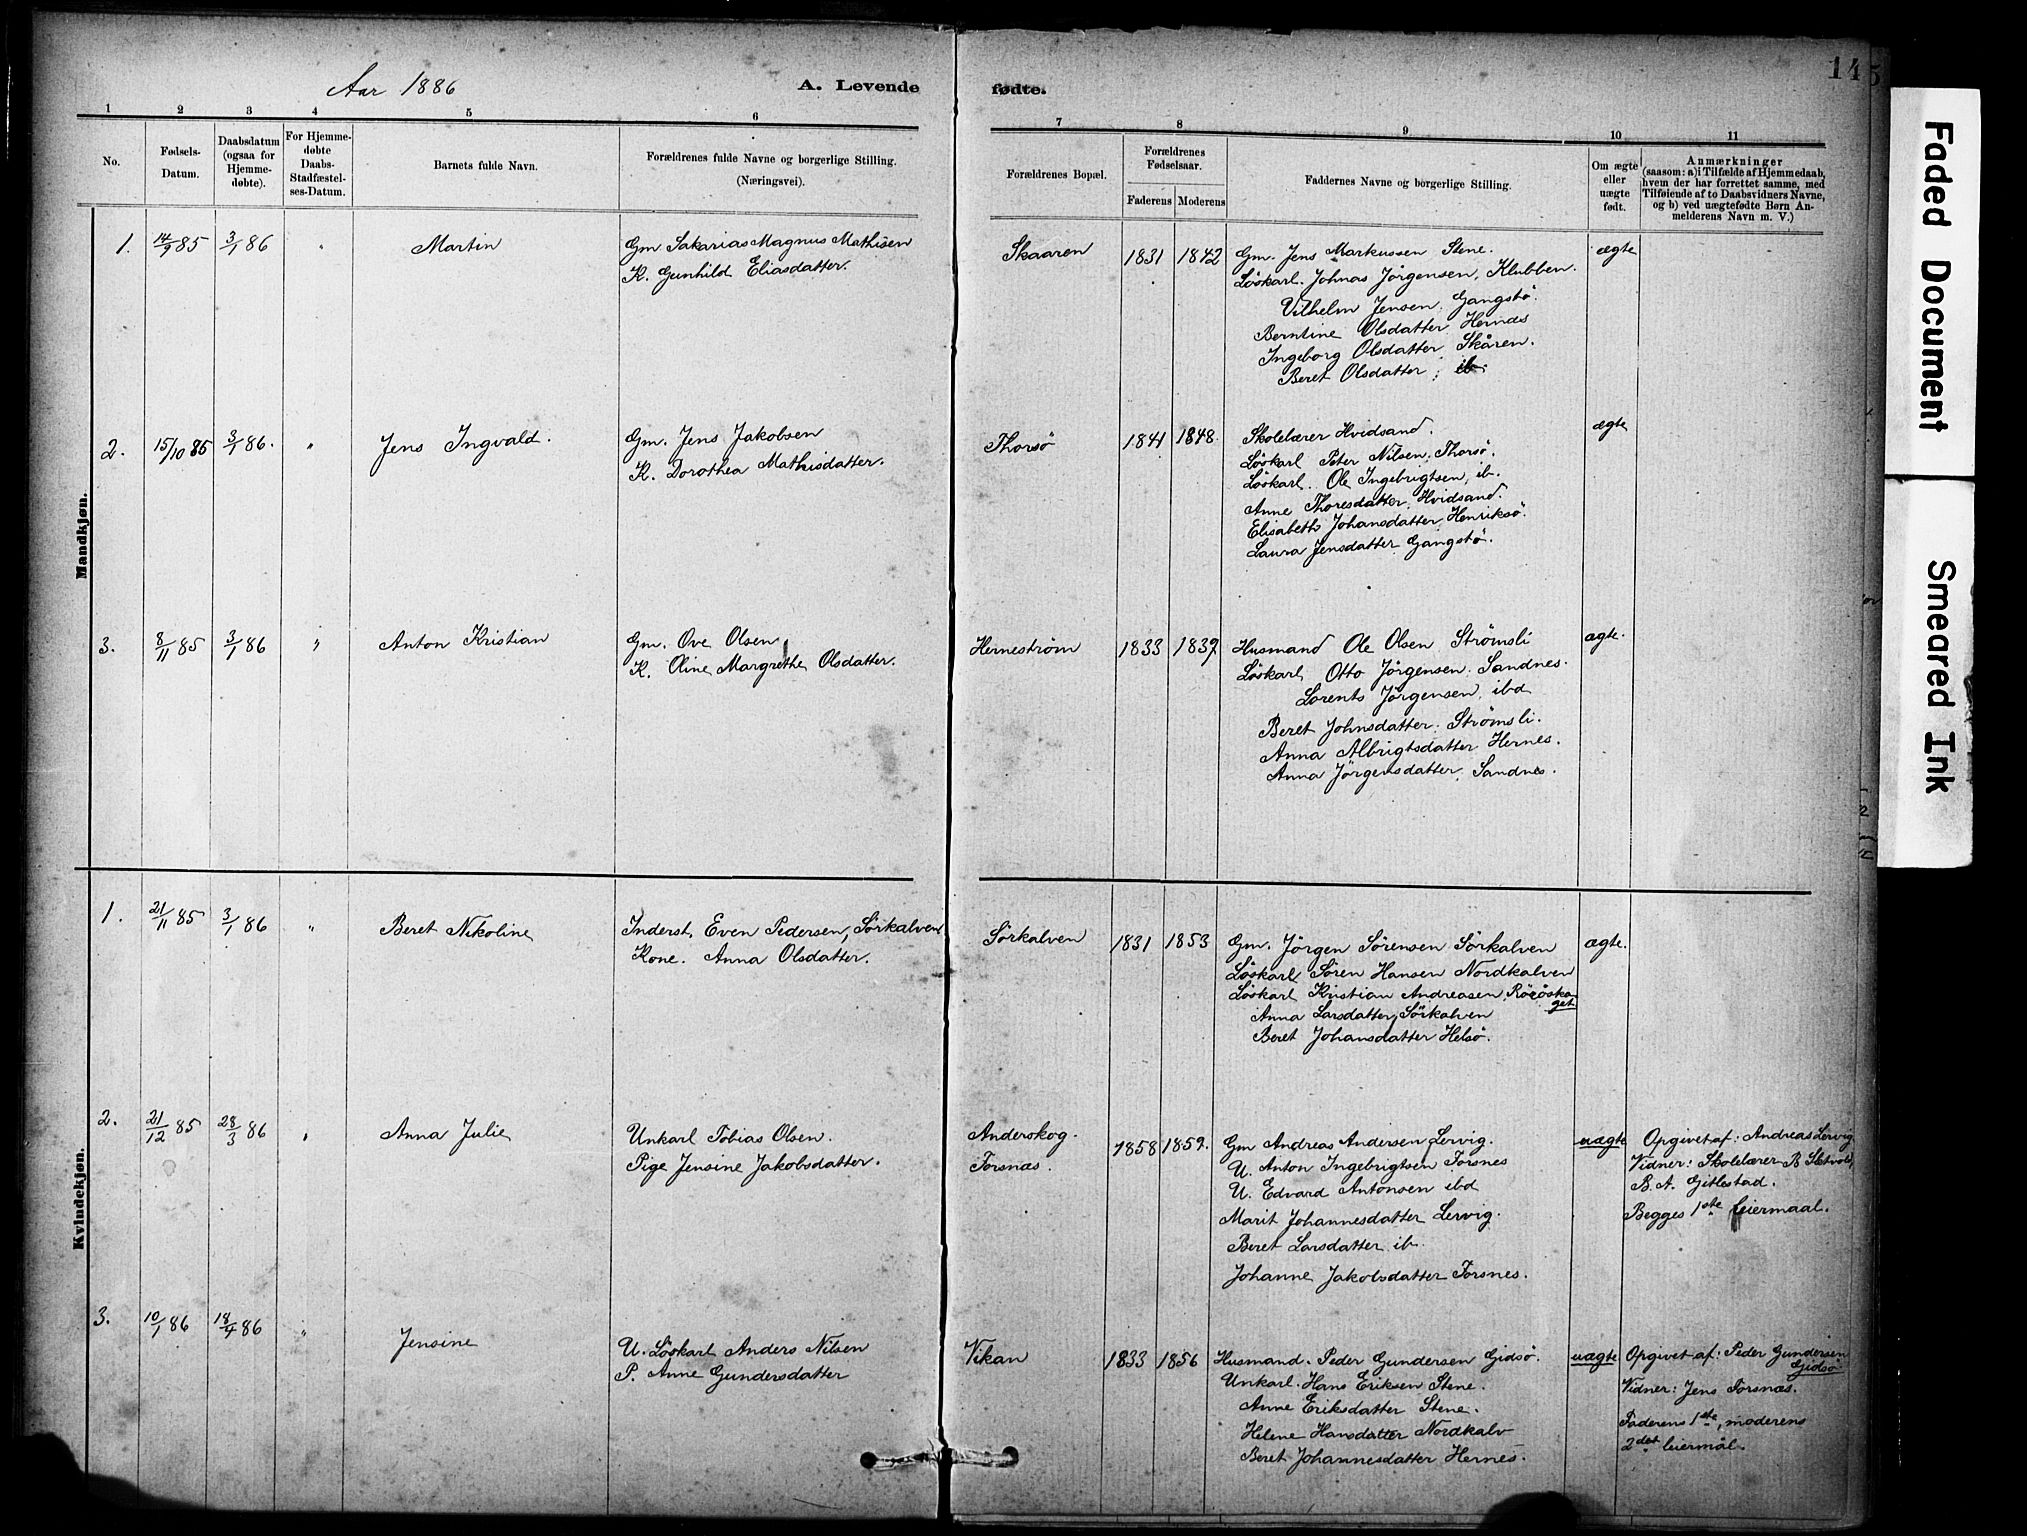 Aar 1886
A. Levende
fødte.
145
Faded Document
Smeared Ink
1 2 3 4 5 6 7 8 9 10 11
No.
Fødsels-
Datum.
Daabsdatum
(ogsaa for
Hjemme-
døbte).
For Hjemme-
døbte
Daabs-
Stadfæstel-
ses-Datum.
Barnets fulde Navn.
Forældrenes fulde Navne og borgerlige Stilling.
(Næringsvei).
Forældrenes Bopæl.
Forældrenes
Fødselsaar.
Faderens Moderens
Faddernes Navne og borgerlige Stilling.
Om ægte
eller
uægte
født.
Anmærkninger
(saasom: a) i Tilfælde af Hjemmedaab,
hvem der har forrettet samme, med
Tilføiende af to Daabsvidners Navne,
og b) ved uægtefødte Børn An-
melderens Navn m. V.)
Mandkjøn.
1. 14/9 85 3/1 86 " Martin
Gm. Sakarias Magnus Mathisen
K. Gunhild Eliasdatter.
Skaaren 1831 1842
Gm. Jens Markussen Stene.
Löskarl. Johnas Jörgensen, Klubben.
Vilhelm Jensen Gangstö.
Berntine Olsdatter Hernæs
Ingeborg Olsdatter Skåren.
Beret Olsdatter, ib.
ægte
2. 15/10 85 3/1 86. " Jens Ingvald.
Gm. Jens Jakobsen
K. Dorothea Mathisdatter.
Thorsö 1841 1848.
Skolelærer Hvidsand.
Löskarl Peter Nilsen, Thorsö.
Löskarl. Ole Ingebrigtsen, ib.
Anne Thoresdatter Hvidsand.
Elisabeth Johansdatter Henriksö.
Laura Jensdatter Gangstö.
ægte
3. 8/11 85 3/1 86 " Anton Kristian
Gm. Ove Olsen
K. Oline Margrethe Olsdatter.
Herneström 1833 1837
Husmand Ole Olsen Strömsli
Löskarl Otto Jörgensen Sandnes.
Lorents Jörgensen, ibd
Beret Johnsdatter Strömsli.
Anna Albrigtsdatter Hernes.
Anna Jörgensdatter, Sandnes.
ægte.
Kvindekjøn.
1. 21/11 85 3/1 86 " Beret Nikoline
Inderst, Even Pedersen, Sörkalven
Kone. Anna Olsdatter.
Sörkalven 1831 1853
Gm. Jörgen Sörensen Sörkalven
Löskarl Sören Hansen Nordkalven
Löskarl Kristian Andreasen, Röcöska
get
Anna Larsdatter, Sörkalven
Beret Johansdatter Helsö.
ægte.
2. 21/12 85 28/3 86 " Anna Julie
Unkarl Tobias Olsen.
Pige Jensine Jakobsdatter.
Anderskog.
Forsnæs.
1858 1859.
Gm Andreas Andersen Lervig.
U. Anton Ingebrigtsen Forsnes
U. Edvard Antonsen ibd
Marit Johannesdatter Lervig.
Beret Larsdatter ib
Johanne Jakobsdatter Forsnes.
uægte
Opgivet af: Andreas Lervig
Vidner: Skolelærer B Sletvold,
B. A. Gitlestad.
Begges 1ste leiermaal.
3. 10/1 86 18/4 86 " Jensine
U. Löskarl Anders Nilsen
P. Anne Gundersdatter
Vikan 1833 1856
Husmand. Peder Gundersen Gidsö.
Unkarl. Hans Eriksen Stene.
Anne Eriksdatter Stene.
Helene Hansdatter Nordkalv
Beret Johannesdatter Hernes.
uægte
Opgivet af: Peder Gundersen
Gidsö
Vidner: Jens Forsnæs.
Faderens 1ste, moderens
2det leiermål.